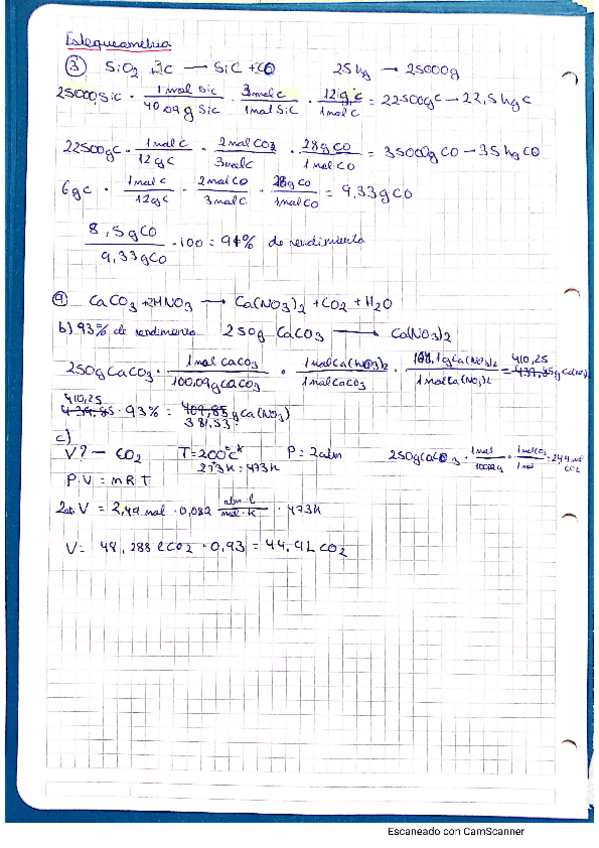 Estequeometria
③ SiO2 + 3C → SiC + CO 25 kg → 25000g
25000 SiC · 1 mol SiC / 40,09 g SiC · 3 mol C / 1 mol SiC · 12 g C / 1 mol C = 22500g C → 22,5 kg C
22500 g C · 1 mol C / 12 g C · 2 mol CO / 3 mol C · 28 g CO / 1 mol CO = 35000g CO → 35 kg CO
6 g C · 1 mol C / 12 g C · 2 mol CO / 3 mol C · 28 g CO / 1 mol CO = 9,33 g CO
8,5 g CO / 9,33 g CO · 100 = 91% de rendimiento
CaCO3 + 2HNO3 → Ca(NO3)2 + CO2 + H2O
b) 93% de rendimiento 250g CaCO3 → Ca(NO3)2
250g CaCO3 · 1 mol CaCO3 / 100,09 g CaCO3 · 1 mol Ca(NO3)2 / 1 mol CaCO3 · g Ca(NO3)2 / 1 mol Ca(NO3)2 = 410,25
410,25 · 93% = 381,53 g Ca(NO3)
c)
V? — CO2 T = 200°C P = 2 atm 250g CaCO3 · 1 mol · 1 mol CO2 / 1 mol = 2,49 mol CO2
273 K : 473K
P · V = n R T
V = 2,49 mol · 0,082 atm · l / mol · K · 473K
V = 48,288 l CO2 · 0,93 = 44,91 L CO2
Escaneado con CamScanner